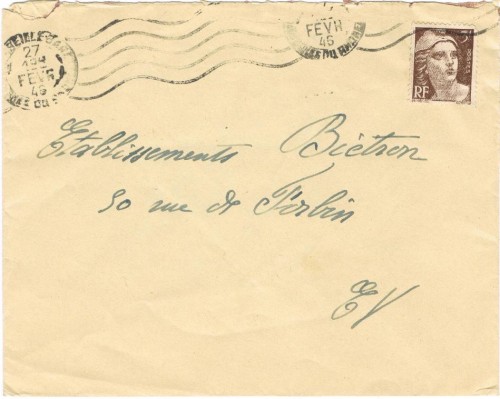 27
FEVR
46
FEVR
46
RF
Etablissements Biétron
50 rue de Forbin
EV